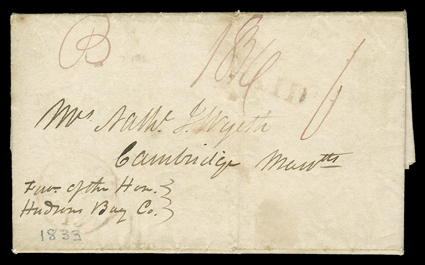 B 186 6
PAID
Mrs Nathl J Wyeth
Cambridge Massts
Favr of the Hon. }
Hudsons Bay Co. }
1833